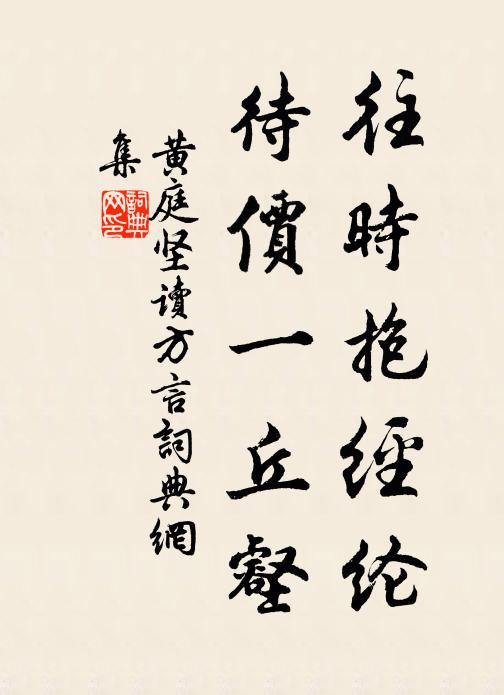 往時抱經纶
待價一丘壑
黄庭坚讀方言詞典網
集
詞典網印